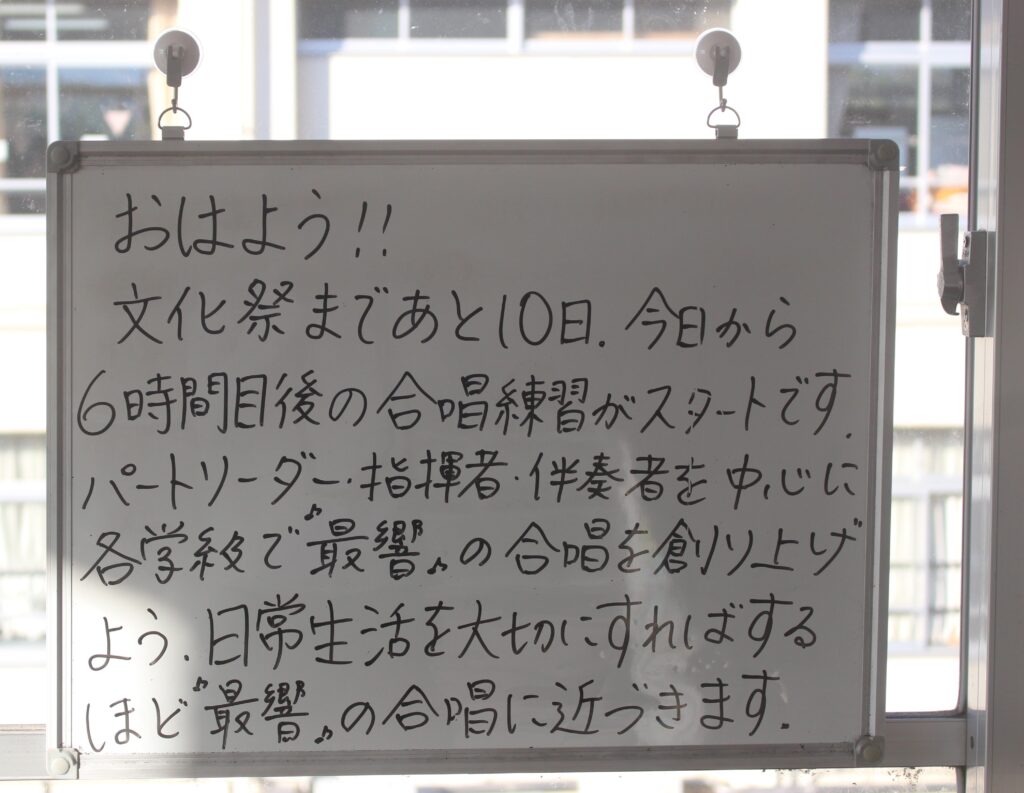 おはよう!!
文化祭まであと10日.今日から
6時間目後の合唱練習がスタートです.
パートリーダー・指揮者・伴奏者を中心に
各学級で♪最響♪の合唱を創り上げ
よう.日常生活を大切にすればする
ほど♪最響♪の合唱に近づきます.